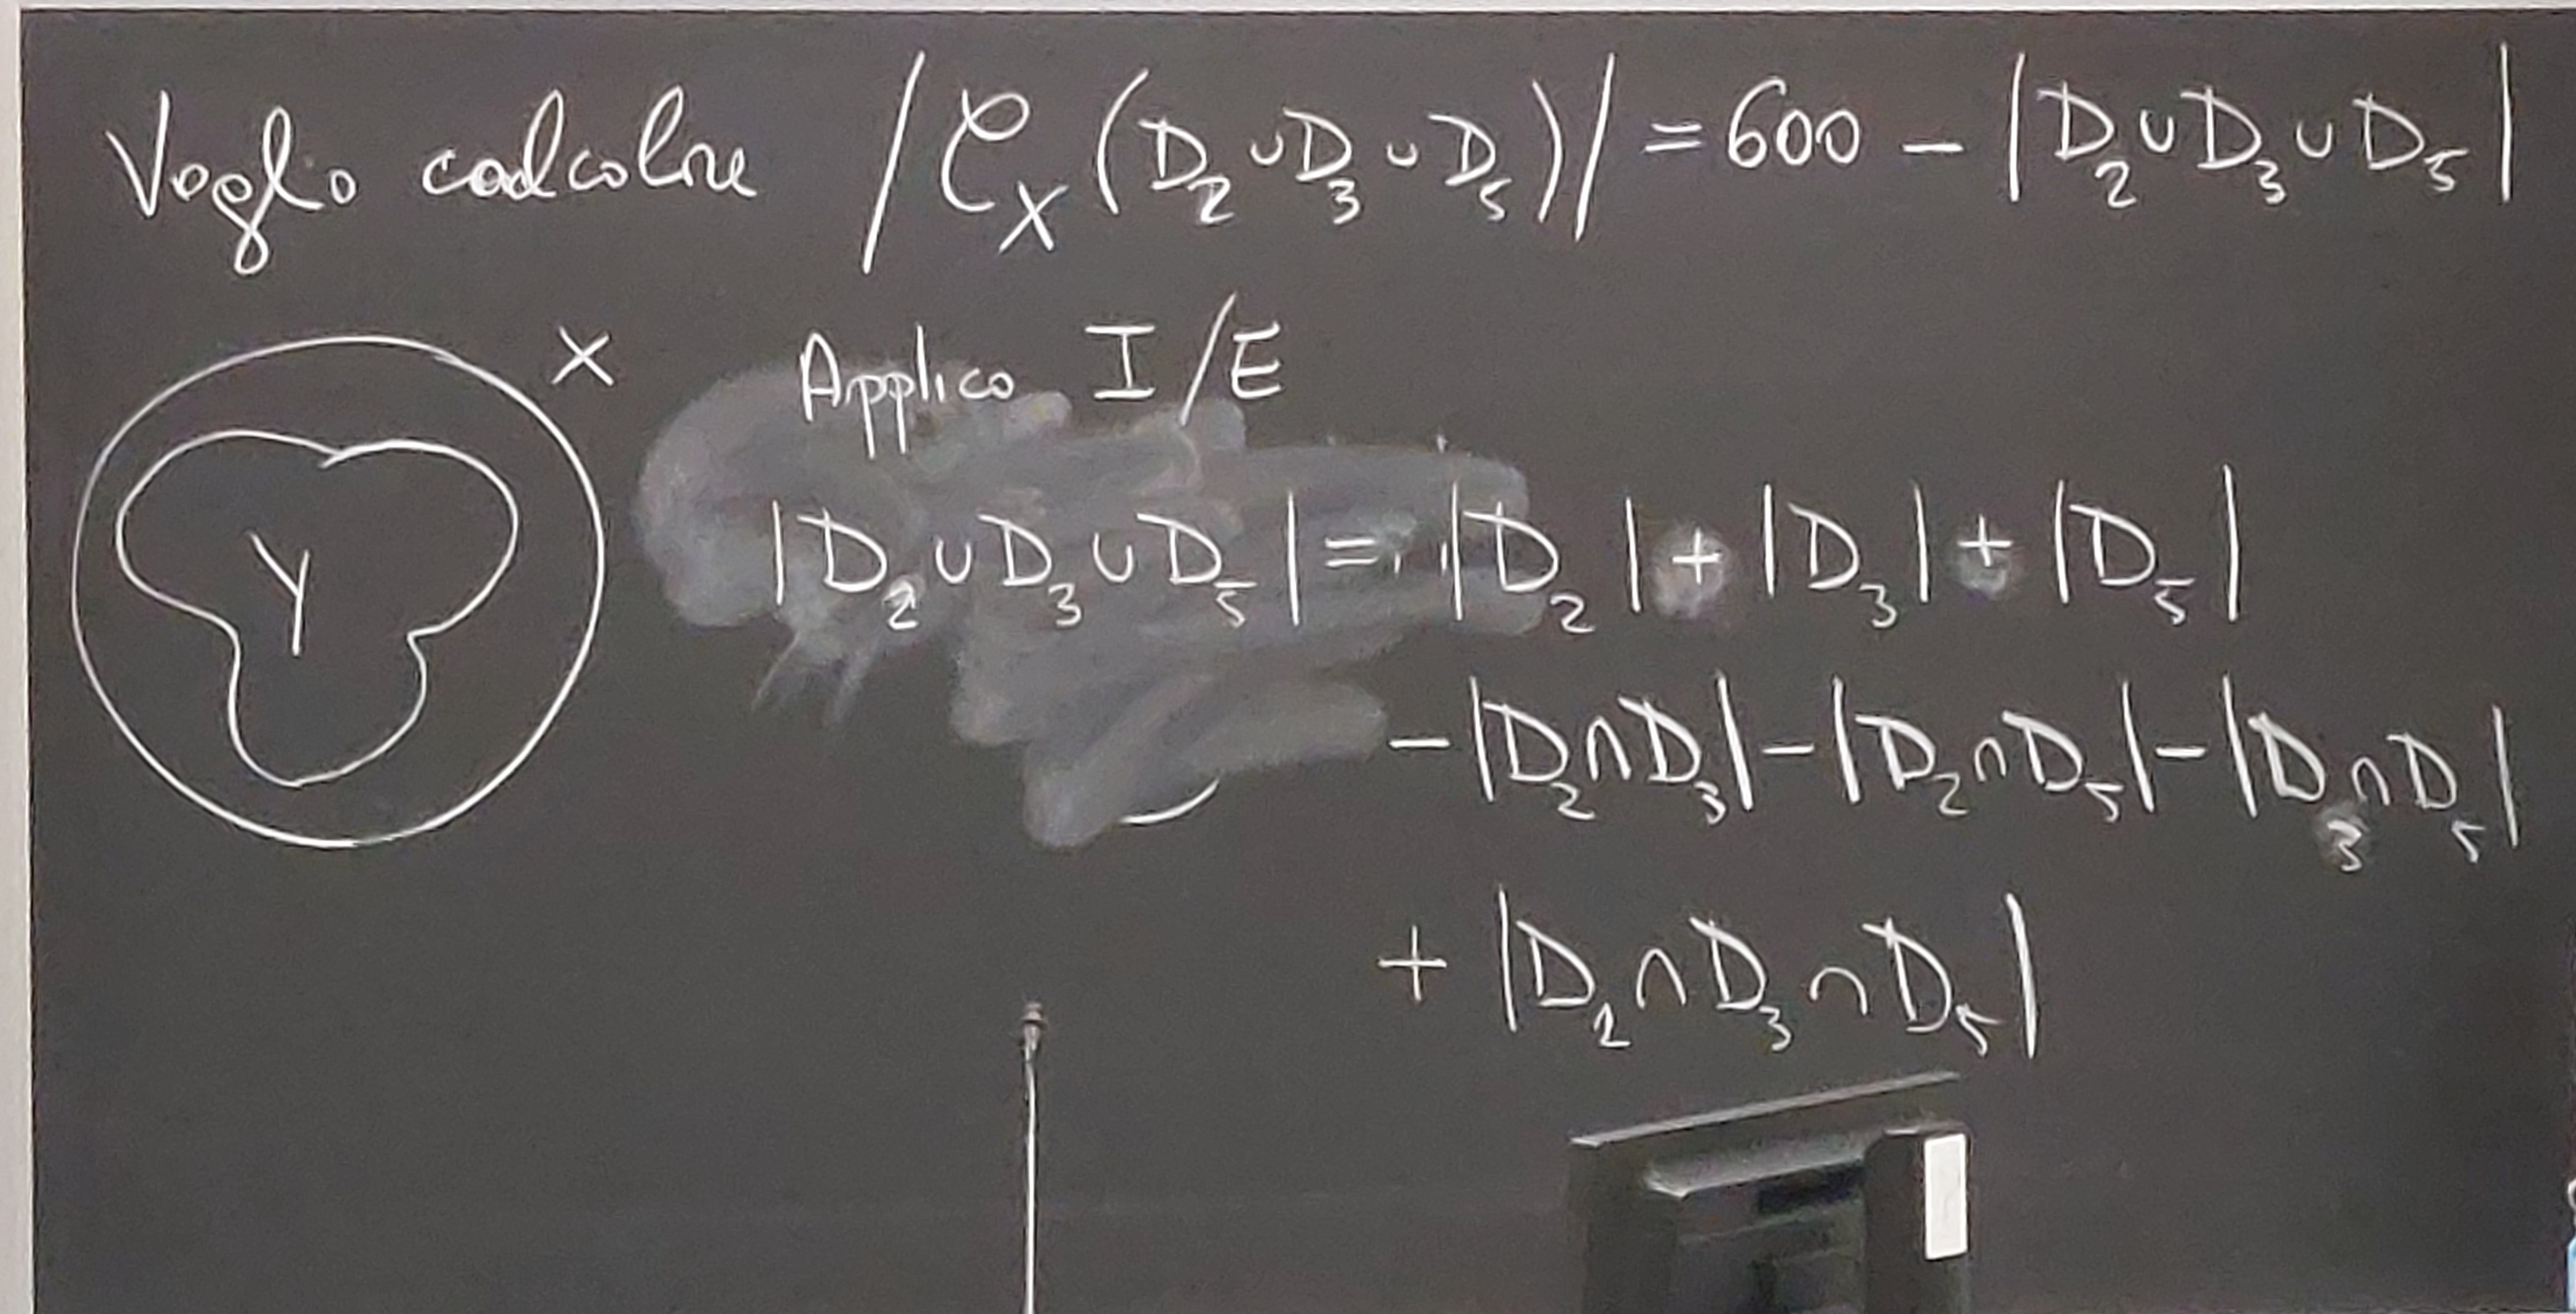 Voglio calcolare |𝒞_X (D₂ ∪ D₃ ∪ D₅)| = 600 − |D₂ ∪ D₃ ∪ D₅|
X
Applico I/E
Y
|D₂ ∪ D₃ ∪ D₅| = |D₂| + |D₃| + |D₅|
− |D₂ ∩ D₃| − |D₂ ∩ D₅| − |D₃ ∩ D₅|
+ |D₂ ∩ D₃ ∩ D₅|